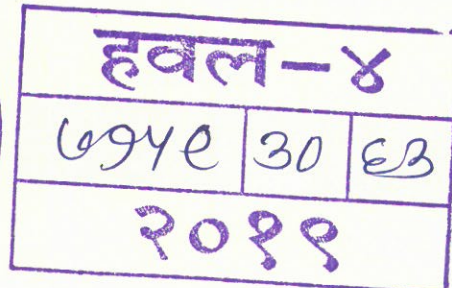 हवल-४
७१५९ ३० ६३
२०१९